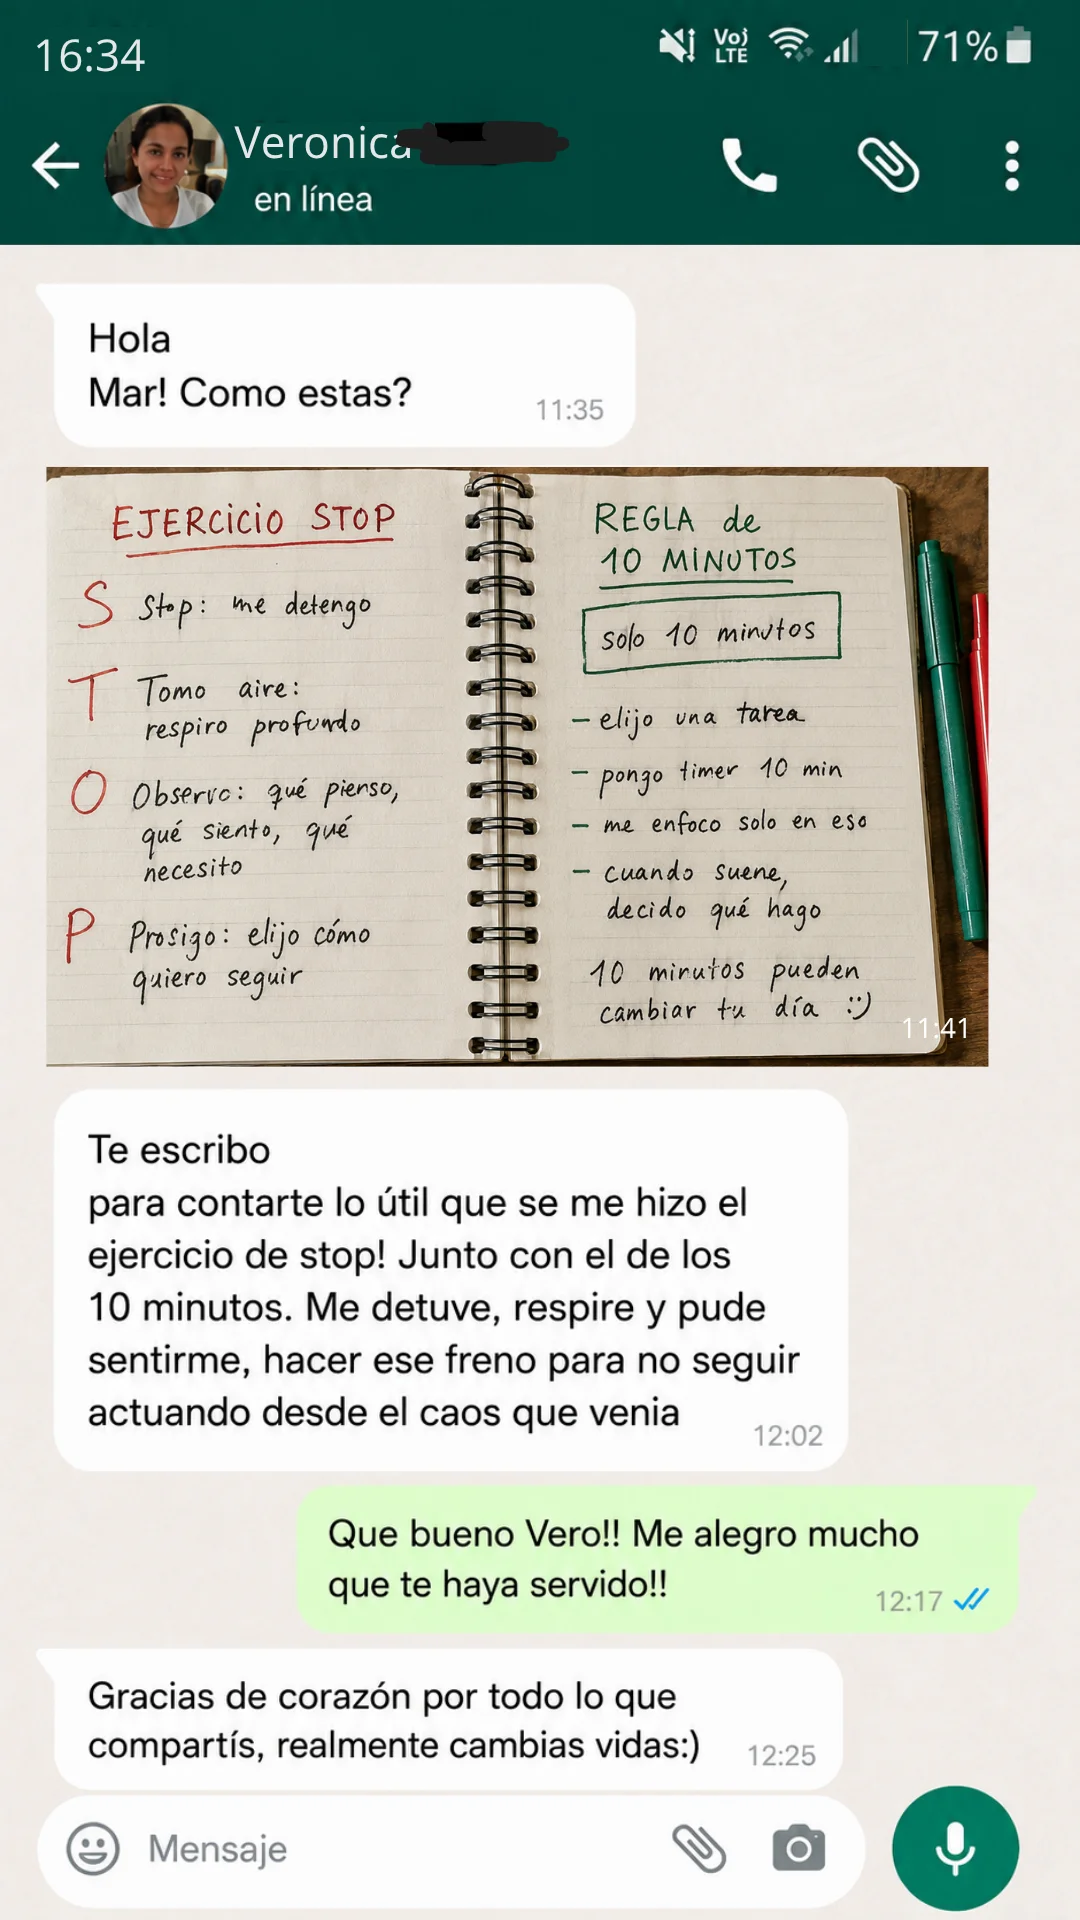 16:34
Vo) LTE
71%
Veronica
en línea
Hola
Mar! Como estas?
11:35
EJERCICIO STOP
S Stop: me detengo
T Tomo aire:
respiro profundo
O Observo: qué pienso,
qué siento, qué
necesito
P Prosigo: elijo cómo
quiero seguir
REGLA de
10 MINUTOS
solo 10 minutos
– elijo una tarea
– pongo timer 10 min
– me enfoco solo en eso
– cuando suene,
decido qué hago
10 minutos pueden
cambiar tu día :)
11:41
Te escribo
para contarte lo útil que se me hizo el
ejercicio de stop! Junto con el de los
10 minutos. Me detuve, respire y pude
sentirme, hacer ese freno para no seguir
actuando desde el caos que venia
12:02
Que bueno Vero!! Me alegro mucho
que te haya servido!!
12:17
Gracias de corazón por todo lo que
compartís, realmente cambias vidas:)
12:25
Mensaje